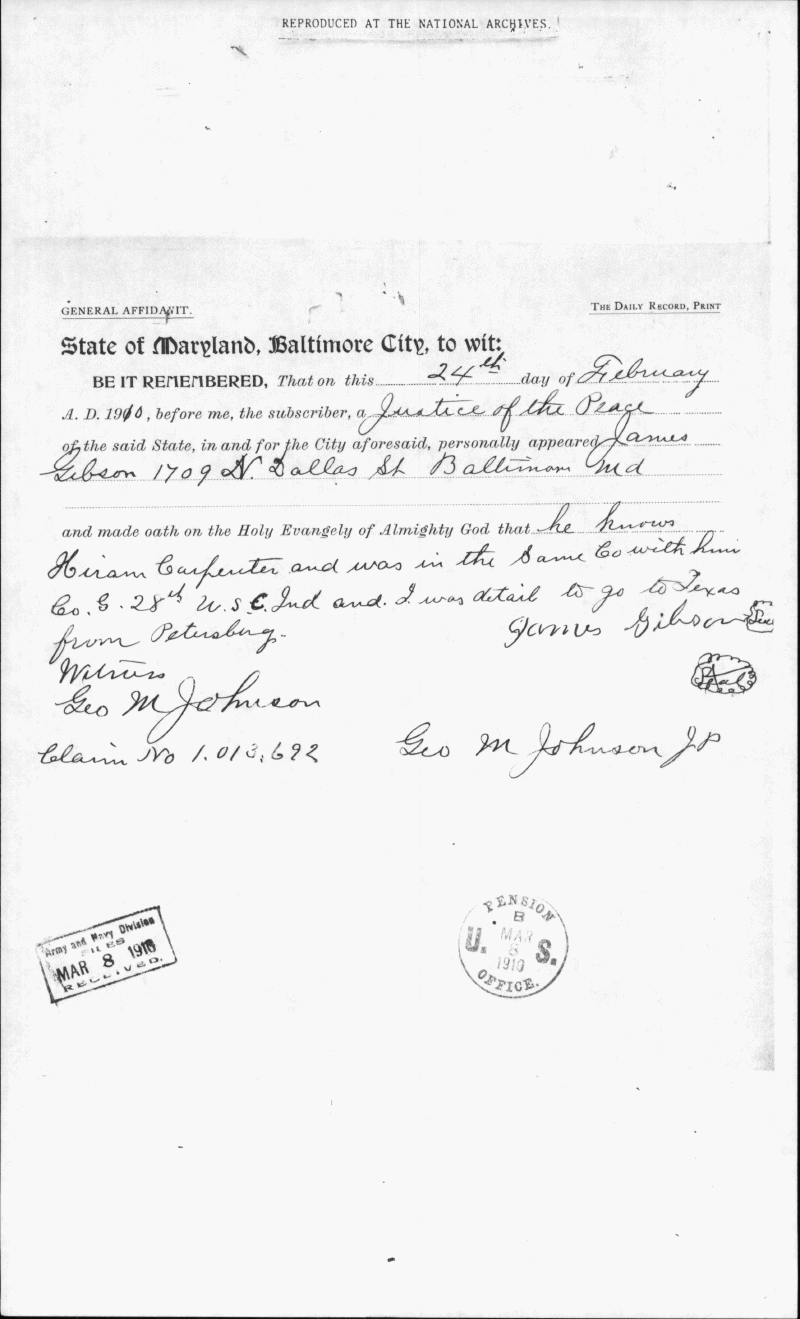 REPRODUCED AT THE NATIONAL ARCHIVES.
GENERAL AFFIDAVIT.
THE DAILY RECORD, PRINT
State of Maryland, Baltimore City, to wit:
BE IT REMEMBERED, That on this 24th day of February
A. D. 1910, before me, the subscriber, a Justice of the Peace
of the said State, in and for the City aforesaid, personally appeared James
Gibson 1709 N. Dallas St Baltimore Md
and made oath on the Holy Evangely of Almighty God that he knows
Hiram Carpenter and was in the Same Co with him
Co. G. 28th U. S. C. Ind and. I was detail to go to Texas
from Petersburg.
James Gibson Seal
Witness
Seal
Geo M Johnson
Claim No 1.013,692
Geo M Johnson JP
Army and Navy Division
FILES
MAR 8 1910
RECEIVED.
PENSION
B
U. MAR S.
8
1910
OFFICE.